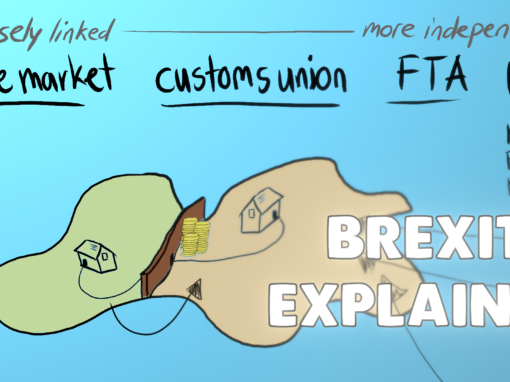 sely linked more indepen
e market customs union FTA
BREXIT
EXPLAIN